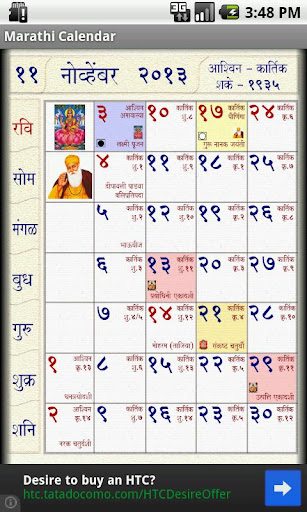 3G
3:48 PM
Marathi Calendar
११ नोव्हेंबर २०१३
आश्विन - कार्तिक
शके - १९३५
रवि
३ आश्विन अमावास्या
लक्ष्मी पूजन
१० कार्तिक शु.८
१७ कार्तिक पौर्णिमा
गुरु नानक जयंती
२४ कार्तिक कृ.६
सोम
४ कार्तिक शु.१
दीपावली पाडवा
बलिप्रतिपदा
११ कार्तिक शु.९
१८ कार्तिक कृ.१
२५ कार्तिक कृ.७
मंगळ
५ कार्तिक शु.२
भाऊबीज
१२ कार्तिक शु.१०
१९ कार्तिक कृ.२
२६ कार्तिक कृ.८
बुध
६ कार्तिक शु.३
१३ कार्तिक शु.११
प्रबोधिनी एकादशी
२० कार्तिक कृ.३
२७ कार्तिक कृ.९
गुरु
७ कार्तिक शु.४/५
मोहरम (ताजिया)
१४ कार्तिक शु.१२
२१ कार्तिक कृ.४
संकष्ट चतुर्थी
२८ कार्तिक कृ.१०
शुक्र
१ आश्विन कृ.१३
धनत्रयोदशी
८ कार्तिक शु.६
१५ कार्तिक शु.१३
२२ कार्तिक कृ.४
२९ कार्तिक कृ.११
उत्पत्ति एकादशी
शनि
२ आश्विन कृ.१४
नरक चतुर्दशी
९ कार्तिक शु.७
१६ कार्तिक शु.१४
२३ कार्तिक कृ.५
३० कार्तिक कृ.१२
Desire to buy an HTC?
htc.tatadocomo.com/HTCDesireOffer